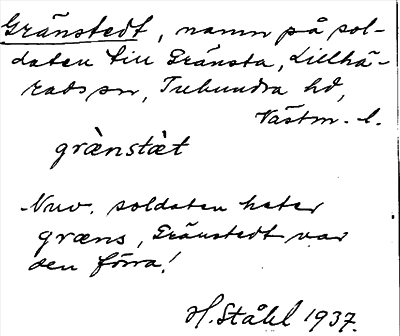 Gränstedt, namn på sol-
daten till Gränsta, Lillhä-
rads sn, Tuhundra hd,
Västm. l.
grä̀nstæ̀t
Nuv. soldaten heter
græns, Gränstedt var
den förra!
H. Ståhl 1937.